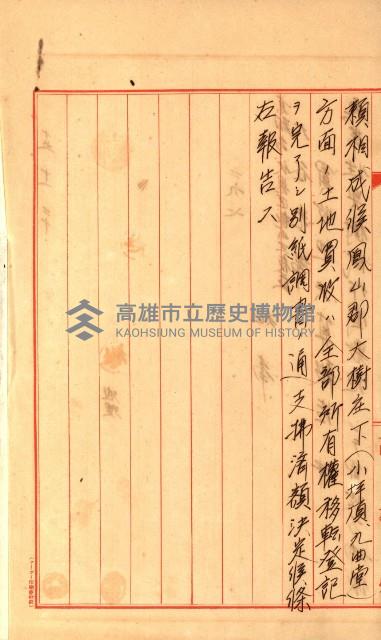 類相成候鳳山郡大樹庄丁(小坪頂、九曲堂)
方面ノ土地買收ハ全部所有權移転登記
ヲ完了シ別紙調書ノ通リ支拂済額決定候條
左報告ス
高雄市立歷史博物館
KAOHSIUNG MUSEUM OF HISTORY